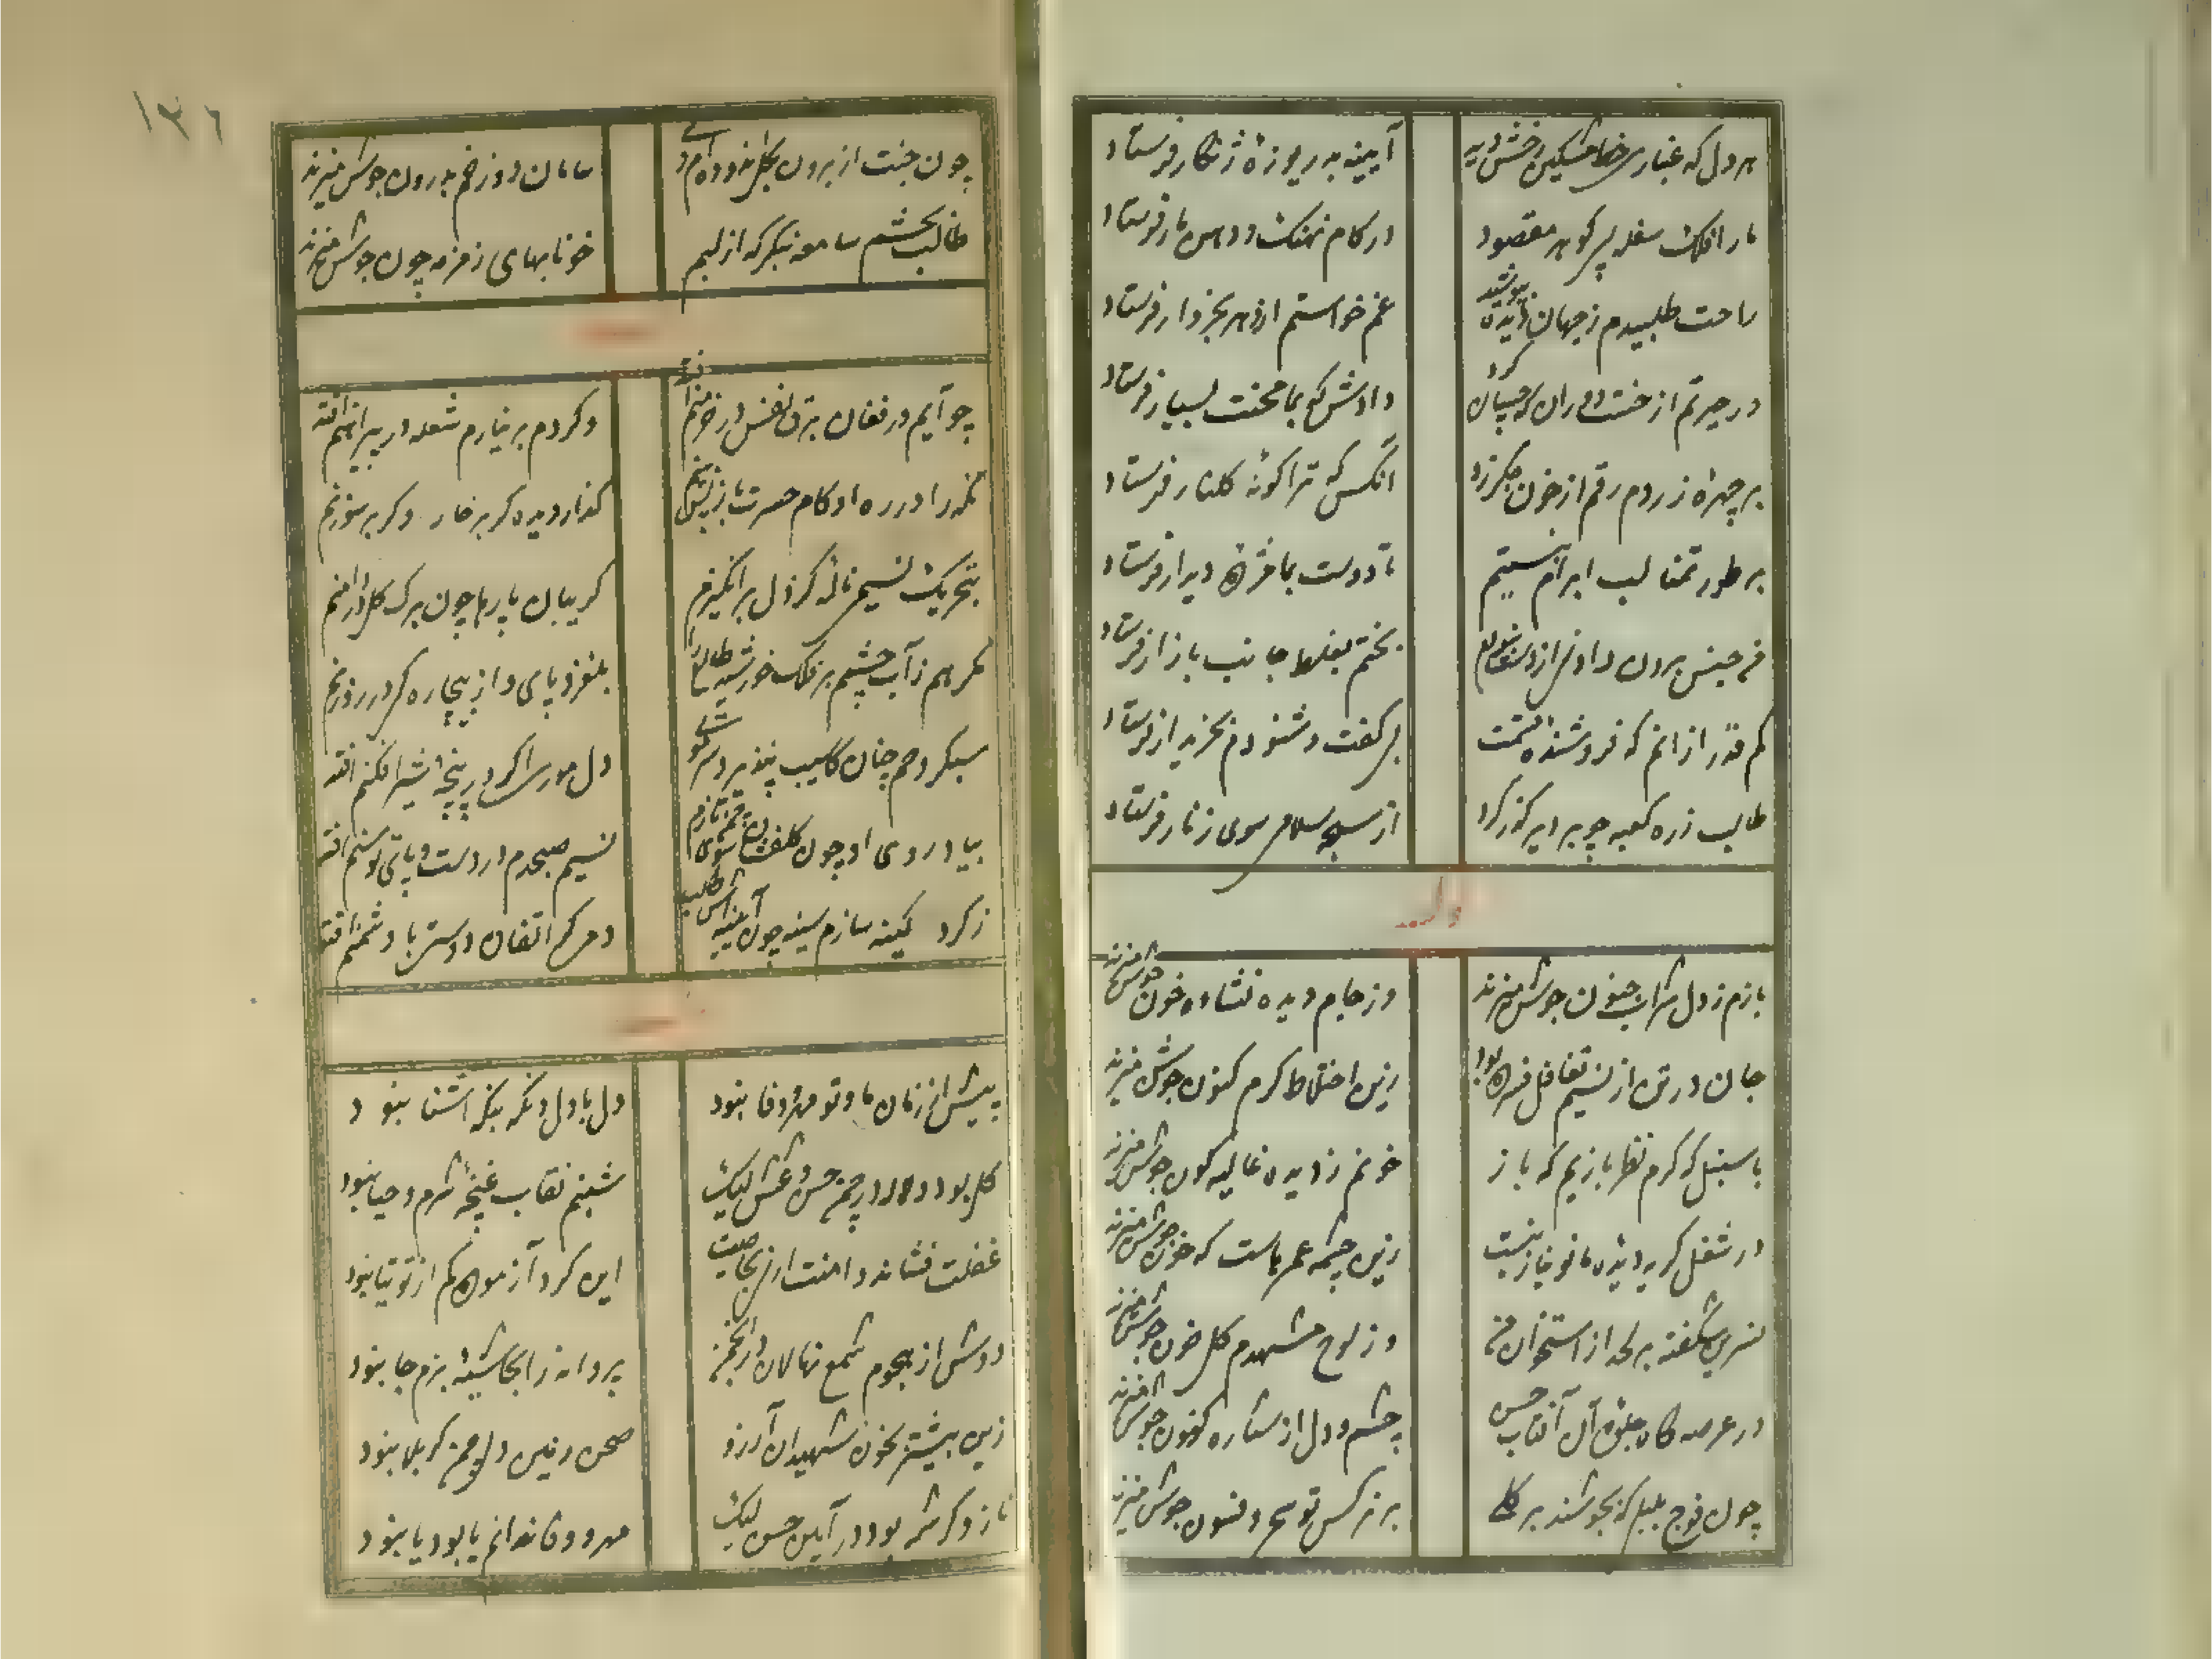 هر دل که غباری ز خط مشکین رخش دید
آیینه به دریوزهٔ زنگار فرستاد
ما را فلک سفله پی گوهر مقصود
در کام نهنگ و دهن مار فرستاد
راحت طلبیدم ز جهان
غم خواستم اندر بخروار فرستاد
در حیرتم از خست دوران که چسان
دادش که بما محنت بسیار فرستاد
بر چهره زردم رقم از خون جگر زد
آنکس که ترا گونه گلنار فرستاد
بر طور تمنا لب ابرام نبستیم
تا دوست بما مژده دیدار فرستاد
بختم بغلط جانب بازار فرستاد
کم قدر از آنم که فروشنده قسمت
بر کفت و شنودم بخریدار فرستاد
طالب ز ره کعبه چو بر دیر گذر کرد
از سبحه سلامی سوی زنار فرستاد
وله
بازم ز دل شراب جنون جوش میزند
وز جام دیده نشاء خون جوش میزند
جان در تن از نسیم تغافل فسرده بود
زین اختلاط گرم کنون جوش میزند
با سنبل که گرم نظر بازیم که باز
خونم ز دیده غالیه گون جوش میزند
در شغل گریه دیده ما نو نیاز نیست
زین چشمه عمرهاست که خون جوش میزند
نسرین شگفته بر لحد از استخوان من
وز لوح مشهدم گل خون جوش میزند
در عرصه گاه جلوه آن آفتاب حسن
چشم و دل از ستاره فزون جوش میزند
چون فوج بلبل که بجوشند بر گلی
بر نرگس تو سحر و فسون جوش میزند
۱۳۶
چون جنت از برون بگل اندوده ام ولی
مامان دوزخم بدرون جوش میزند
طالب بچشم سامعه بنگر که از لبم
خونابهای زمزمه چون جوش میزند
چو آیم در فغان برق نفس در خرمنم افتد
وگر دم بر نیارم شعله در پیراهنم افتد
نگه را در ره او کام حسرت
گذار دیده گر بر خار وگر بر سوزنم
بتحریک نسیم ناله گر از دل برانگیزم
گریبان پارها چون برگ گل در دامنم
گر هم ز آب چشم بر فلک خورشید طالع را
بلغزد پای و از بیچاره گی در روزنم
سبکروحم چنان کاسیب نپذیرد سر مویی
دل موری اگر در پنجه شیر افکنم افتد
بیاد روی او چون گلفشان
نسیم صبحدم در دست و پای توسنم افتد
ز گرد کینه سازم سینه چون آیینه اش طالب
دمی گر اتفاق دوستی با دشمنم افتد
پیش از زمان ما و تو مهر و وفا نبود
دل با دل و نگه بنگه آشنا نبود
گل بود و لاله در چمن حسن و عشق لیک
شبنم نقاب غنچه شرم و حیا نبود
غفلت فشاند دامنت ارنی بخاصیت
این گرد آزموده کم از توتیا نبود
دوش از هجوم شمع نهالان در انجمن
پروانه را بحاشیه بزم جا نبود
زین بیشتر بخون شهیدان آرزو
صحن زمین دل چمن کربلا نبود
ناز و کرشمه بود در آیین حسن لیک
مهر و وفا ندانم یا بود یا نبود